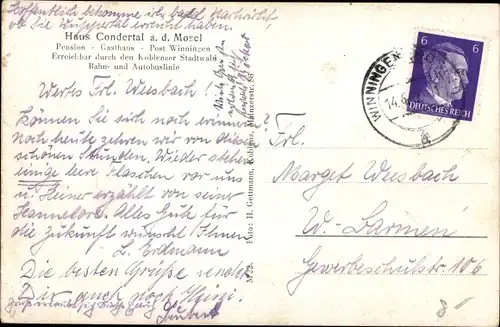 Hoffentlich bekomme ich bald Nachricht
ob Sie Wuppertal erreicht haben.
Haus Condertal a. d. Mosel
Pension - Gasthaus - Post Winningen
Erreichbar durch den Koblenzer Stadtwald
Bahn- und Autobuslinie
Wertes Frl. Wiesbach!
Können Sie sich noch erinnern
Noch heute zehren wir von diesen
schönen Stunden. Wieder stehen
einige leere Flaschen vor uns
u. Heiner erzählt von seiner
Hannelore. Alles Gute für
die Zukunft wünscht Ihnen
L. Erdmann
Die besten Grüße sendet
Dir auch noch Heinzi.
Foto: H. Gettmann, Koblenz, Mainzerstr. 80
M 28.
WINNINGEN
14.6
6 6
DEUTSCHES REICH
a
Frl.
Margot Wiesbach
W.-Barmen
Gewerbeschulstr. 106